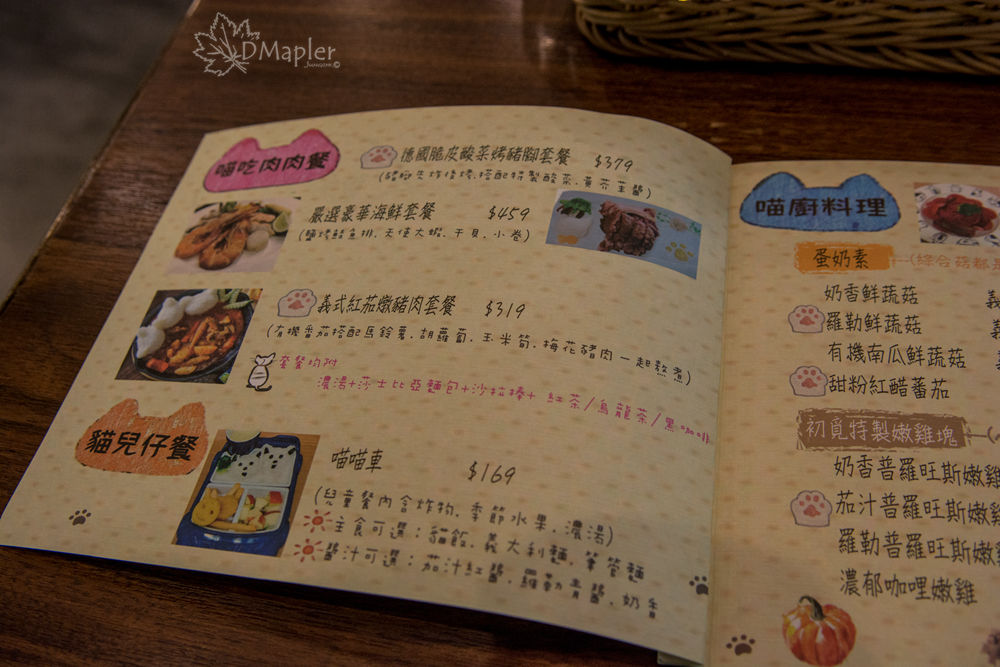 DMapler
喵吃肉肉餐
德國脆皮酸菜烤豬腳套餐 $379
(豬腳先炸後烤.搭配特製酸菜.黃芥茉醬)
嚴選豪華海鮮套餐 $459
(鹽烤鯖魚排.天使大蝦.干貝.小卷)
義式紅茄燉豬肉套餐 $319
(有機番茄搭配馬鈴薯.胡蘿蔔.玉米筍.梅花豬肉一起熬煮)
套餐均附
濃湯+莎士比亞麵包+沙拉棒+紅茶/烏龍茶/黑咖啡
貓兒仔餐
喵喵車 $169
(兒童餐內含炸物.季節水果.濃湯)
主食可選:貓飯.義大利麵.筆管麵
醬汁可選:茄汁紅醬.羅勒青醬.奶香
喵廚料理
蛋奶素 (綜合菇都是
奶香鮮蔬菇
羅勒鮮蔬菇
有機南瓜鮮蔬菇
甜粉紅醋蕃茄
初覓特製嫩雞塊
奶香普羅旺斯嫩雞
茄汁普羅旺斯嫩雞
羅勒普羅旺斯嫩雞
濃郁咖哩嫩雞